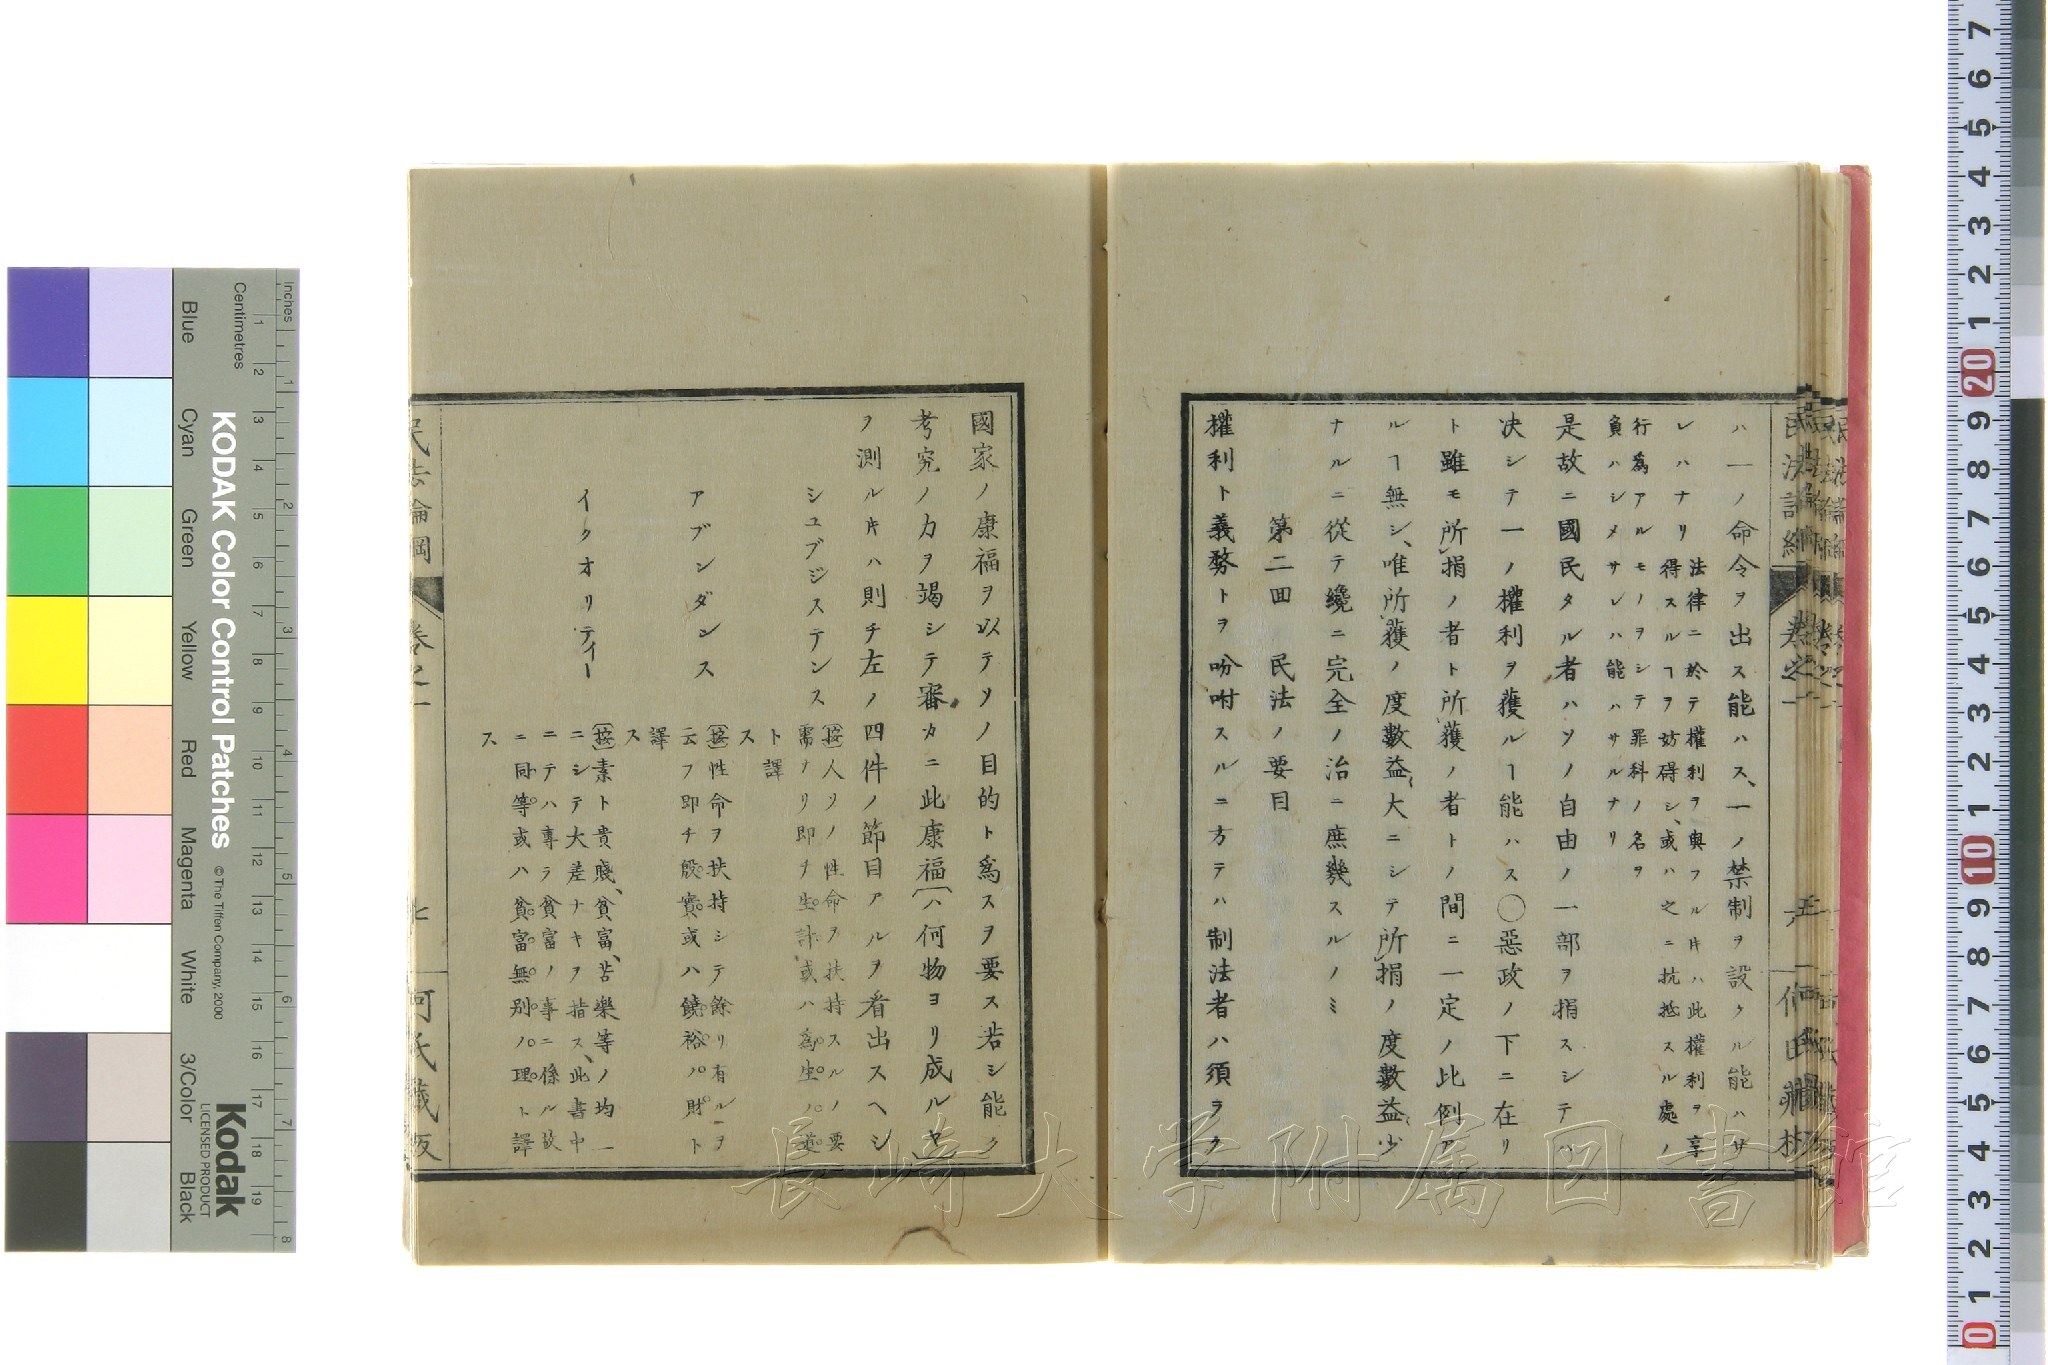 ハ一ノ命令ヲ出ス能ハス、一ノ禁制ヲ設クル能ハサ
レハナリ
法律ニ於テ權利ヲ與フル𪜈ハ此權利ヲ享
得スルヿヲ妨碍シ、或ハ之ニ抗抵スル處ノ
行爲アルモノヲシテ罪科ノ名ヲ
負ハシメサレハ能ハサルナリ
是故ニ國民タル者ハソノ自由ノ一部ヲ捐スシテハ
决シテ一ノ權利ヲ獲ルヿ能ハス〇惡政ノ下ニ在リ
ト雖モ所捐ノ者ト所獲ノ者トノ間ニ一定ノ比例ア
ルヿ無シ、唯所獲ノ度數益大ニシテ所捐ノ度數益少
ナルニ從テ纔ニ完全ノ治ニ庶幾スルノミ
第二回 民法ノ要目
權利ト義務トヲ吩咐スルニ方テハ制法者ハ須ラク
國家ノ康福ヲ以テソノ目的ト爲スヲ要ス若シ能ク
考究ノ力ヲ竭シテ審カニ此康福ハ何物ヨリ成ルヤ
ヲ測ル𪜈ハ則チ左ノ四件ノ節目アルヲ看出スヘシ
シュブジステンス
按人ソノ性命ヲ扶持スルノ要
需ナリ即チ生計或ハ爲生ノ道
ト譯
ス
アブンダンス
按性命ヲ扶持シテ餘リ有ルヿヲ
云フ即チ殷實或ハ饒裕ノ財ト
譯
ス
イクオリティー
按素ト貴賤、貧富、苦樂等ノ均一
ニシテ大差ナキヲ指ス、此書中
ニテハ專ラ貧富ノ事ニ係ル故
ニ同等或ハ貧富無別ノ理ト譯
ス
民法論綱 卷之一 七 何氏藏版
長崎大学附属図書館
KODAK Color Control Patches
© The Tiffen Company, 2000
Kodak
LICENSED PRODUCT
Inches
Centimetres
Blue Cyan Green Yellow Red Magenta White 3/Color Black